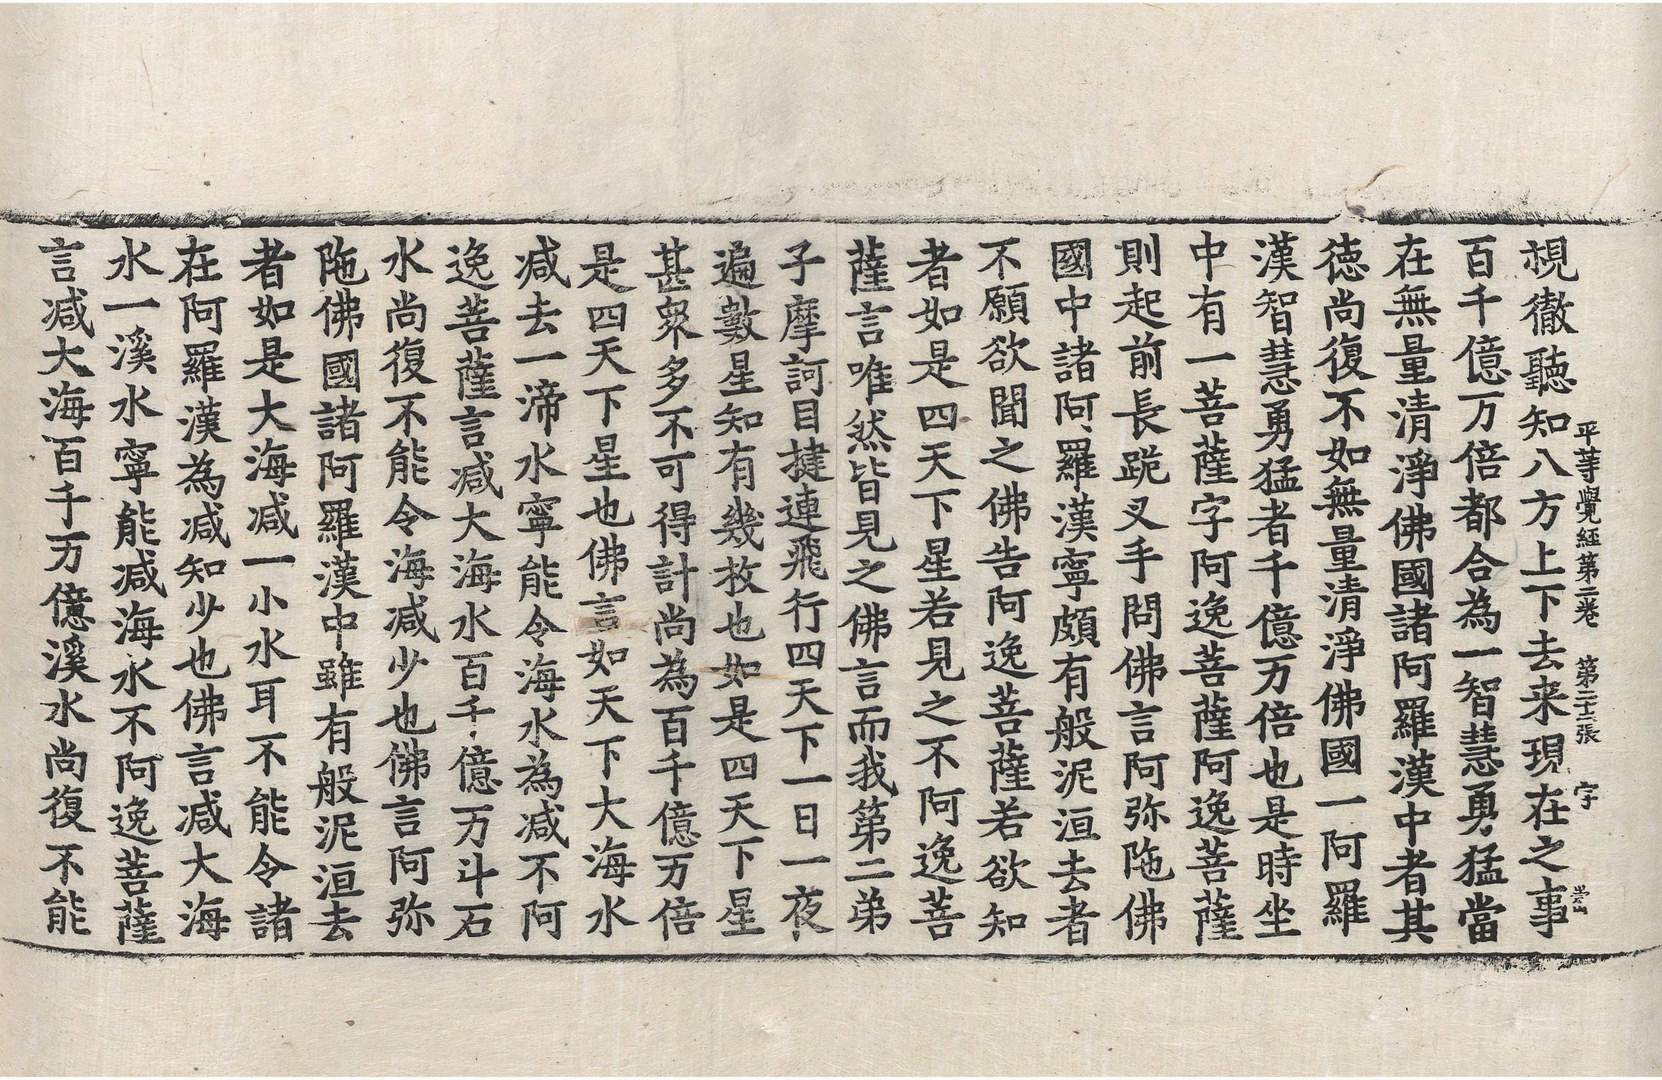 平等覺經第二卷　第二十二張　字
視徹聽知八方上下去来現在之事
百千億万倍都合為一智慧勇猛當
在無量清淨佛國諸阿羅漢中者其
徳尚復不如無量清淨佛國一阿羅
漢智慧勇猛者千億万倍也是時坐
中有一菩薩字阿逸菩薩阿逸菩薩
則起前長跪叉手問佛言阿弥陁佛
國中諸阿羅漢寧頗有般泥洹去者
不願欲聞之佛告阿逸菩薩若欲知
者如是四天下星若見之不阿逸菩
薩言唯然皆見之佛言而我第二弟
子摩訶目揵連飛行四天下一日一夜
遍數星知有幾枚也如是四天下星
甚眾多不可得計尚為百千億万倍
是四天下星也佛言如天下大海水
减去一渧水寧能令海水為减不阿
逸菩薩言减大海水百千億万斗石
水尚復不能令海减少也佛言阿弥
陁佛國諸阿羅漢中雖有般泥洹去
者如是大海减一小水耳不能令諸
在阿羅漢為减知少也佛言减大海
水一溪水寧能减海水不阿逸菩薩
言减大海百千万億溪水尚復不能